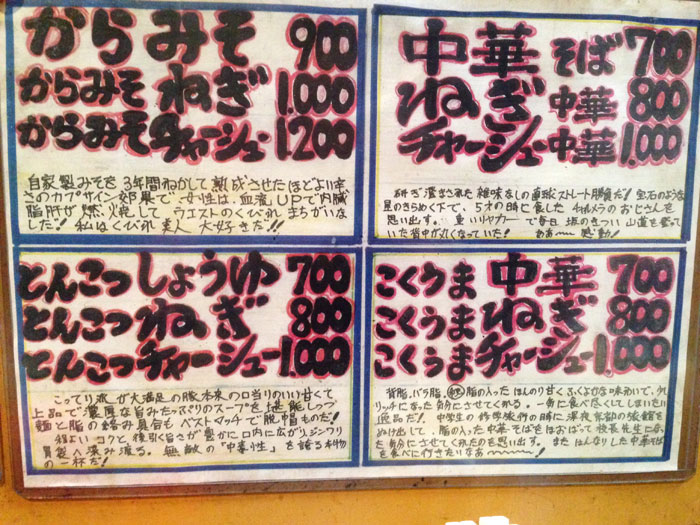 からみそ 900
からみそ ねぎ 1.000
からみそチャーシュー 1.200
自家製みそを3年間ねかして熟成させたほどよい辛
さのカプサイン効果で女性は、血流UPで内臓
脂肝が燃焼してウエストのくびれまちがいな
した!!私はくびれ美人 大好きだ!!
中華そば 700
ねぎ 中華 800
チャーシュー中華 1.000
研ぎ澄まされた雑味なしの直球ストレート勝負だ!宝石のような
星のきらめく下で、5才の時に食したチャルメラのおじさんを
思い出す。重いリヤカーで毎日坂のきつい山道を登って
いた背中が丸くなっていた! ああ〜感動!
とんこつしょうゆ 700
とんこつねぎ 800
とんこつチャーシュー1.000
こってり派が大満足の豚本来の口当りのいい甘くて
上品で濃厚な旨みたっぷりのスープを堪能しつつ
麺と脂の絡み具合もベストマッチで脱帽ものだ!
程よいコクと後引く旨さが豊かに口内に広がりジンワリ
胃袋へ滲み渡る。無敵の「中毒性」を誇る本物
の一杯だ!
こくうま 中華 700
こくうま ねぎ 800
こくうま チャーシュー 1.000
背脂、バラ脂、脂の入ったほんのり甘くふくよかな味わいで、
リッチになった気分にさせてくれる。一気に食べ尽くしてしまいたい
逸品だ!中学生の修学旅行の時に深夜京都の旅館を
ぬけ出して、脂の入った中華そばをほおばって校長先生に会っ
た気分にさせてくれたのを思い出す。またはんなりした中華そば
を食べに行きたいなあ〜〜!